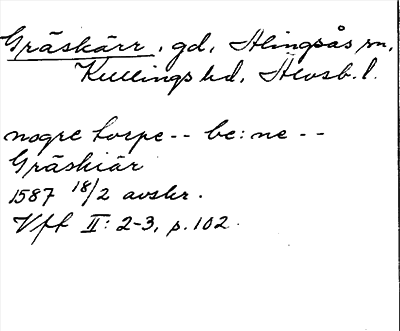 Gräskärr, gd, Alingsås sn,
Kullings hd, Älvsb. l.
nogre torpe -- be:ne --
Gräskiär
1587 18/2 avskr.
Vff II: 2-3, p. 102.